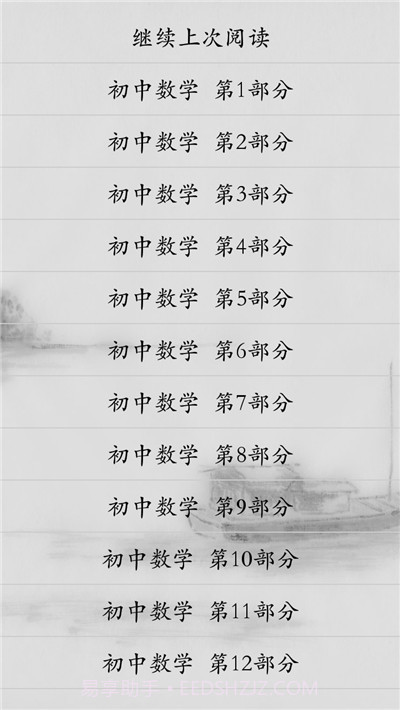 继续上次阅读
初中数学 第1部分
初中数学 第2部分
初中数学 第3部分
初中数学 第4部分
初中数学 第5部分
初中数学 第6部分
初中数学 第7部分
初中数学 第8部分
初中数学 第9部分
初中数学 第10部分
初中数学 第11部分
初中数学 第12部分